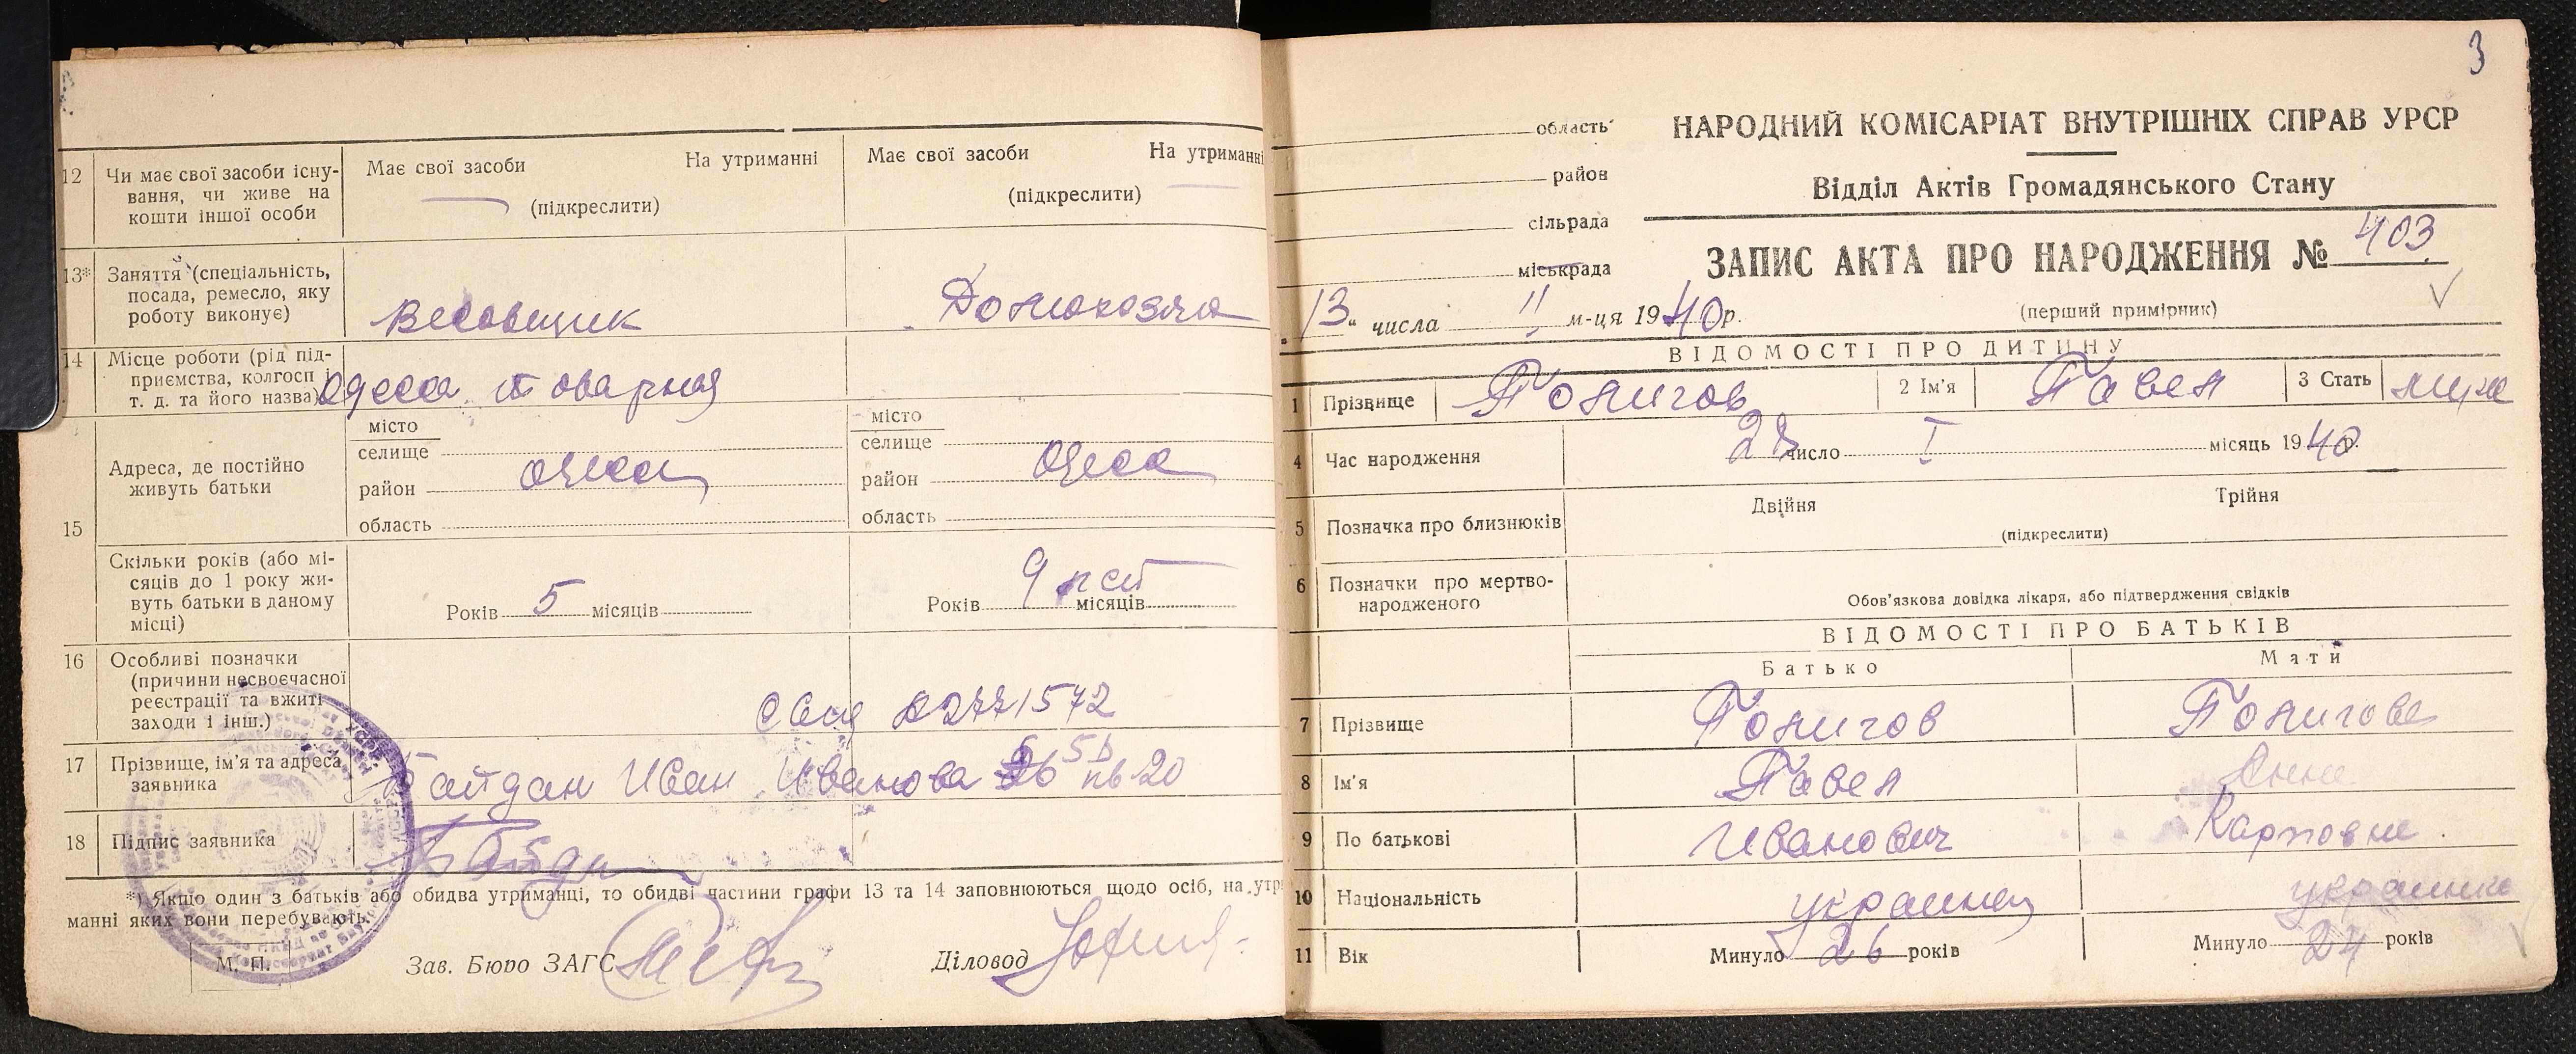 12 Чи має свої засоби існу-
вання, чи живе на
кошти іншої особи
Має свої засоби На утриманні
(підкреслити)
Має свої засоби На утриманні
(підкреслити)
13* Заняття (спеціальність,
посада, ремесло, яку
роботу виконує)
Весовщик
Домохозяйка
14 Місце роботи (рід під-
приємства, колгосп і
т. д. та його назва)
Одесса товарная
15 Адреса, де постійно
живуть батьки
місто
селище
район
область
Одесса
місто
селище
район
область
Одесса
Скільки років (або мі-
сяців до 1 року жи-
вуть батьки в даному
місці)
Років 5 місяців
Років 9 лет місяців
16 Особливі позначки
(причини несвоєчасної
реєстрації та вжиті
заходи і інш.)
17 Прізвище, ім'я та адреса
заявника
Байдан Иван Иванова 20
18 Підпис заявника
*) Якщо один з батьків або обидва утриманці, то обидві частини графи 13 та 14 заповнюються щодо осіб, на утри
манні яких вони перебувають.
М. П. Зав. Бюро ЗАГС Діловод
3
область
район
сільрада
міськрада
НАРОДНИЙ КОМІСАРІАТ ВНУТРІШНІХ СПРАВ УРСР
Відділ Актів Громадянського Стану
ЗАПИС АКТА ПРО НАРОДЖЕННЯ № 403
13" числа II м-ця 1940 р.
(перший примірник)
ВІДОМОСТІ ПРО ДИТИНУ
1 Прізвище 2 Ім'я Павел 3 Стать муж
4 Час народження число I місяць 1940 р.
5 Позначка про близнюків Двійня Трійня
(підкреслити)
6 Позначки про мертво-
народженого
Обов'язкова довідка лікаря, або підтвердження свідків
ВІДОМОСТІ ПРО БАТЬКІВ
Батько Мати
7 Прізвище
8 Ім'я Павел Анна
9 По батькові Иванович Карповна
10 Національність украинец украинка
11 Вік Минуло 26 років Минуло 24 років